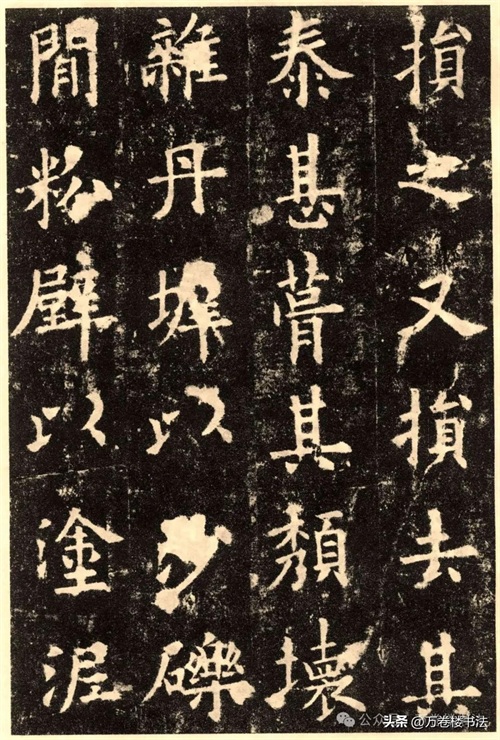 損之又損去其
泰甚葺其頹壞
雜丹墀以沙礫
閒粉壁以塗泥
头条 @万卷楼书法